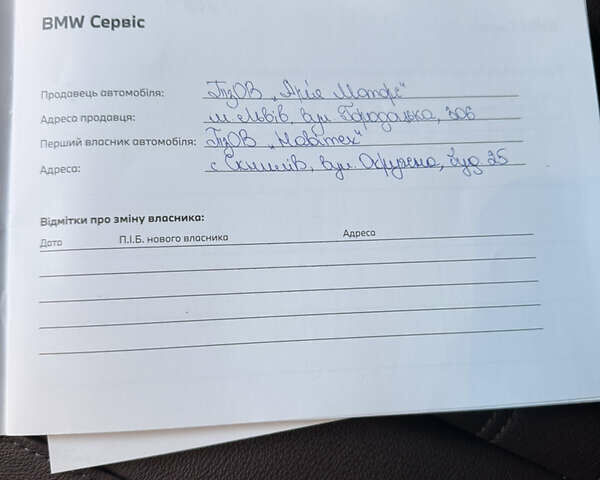 BMW Сервіс
Продавець автомобіля: ТзОВ „Арія Моторс"
Адреса продавця: м Львів, вул Городоцька, 306
Перший власник автомобіля: ТзОВ „Мавітех"
Адреса: с Скнилів, вул. Окружна, буд 25
Відмітки про зміну власника:
Дата П.І.Б. нового власника Адреса